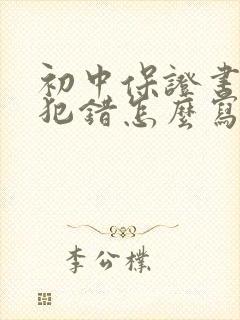 初中保證書
犯錯怎麼寫
李公樸